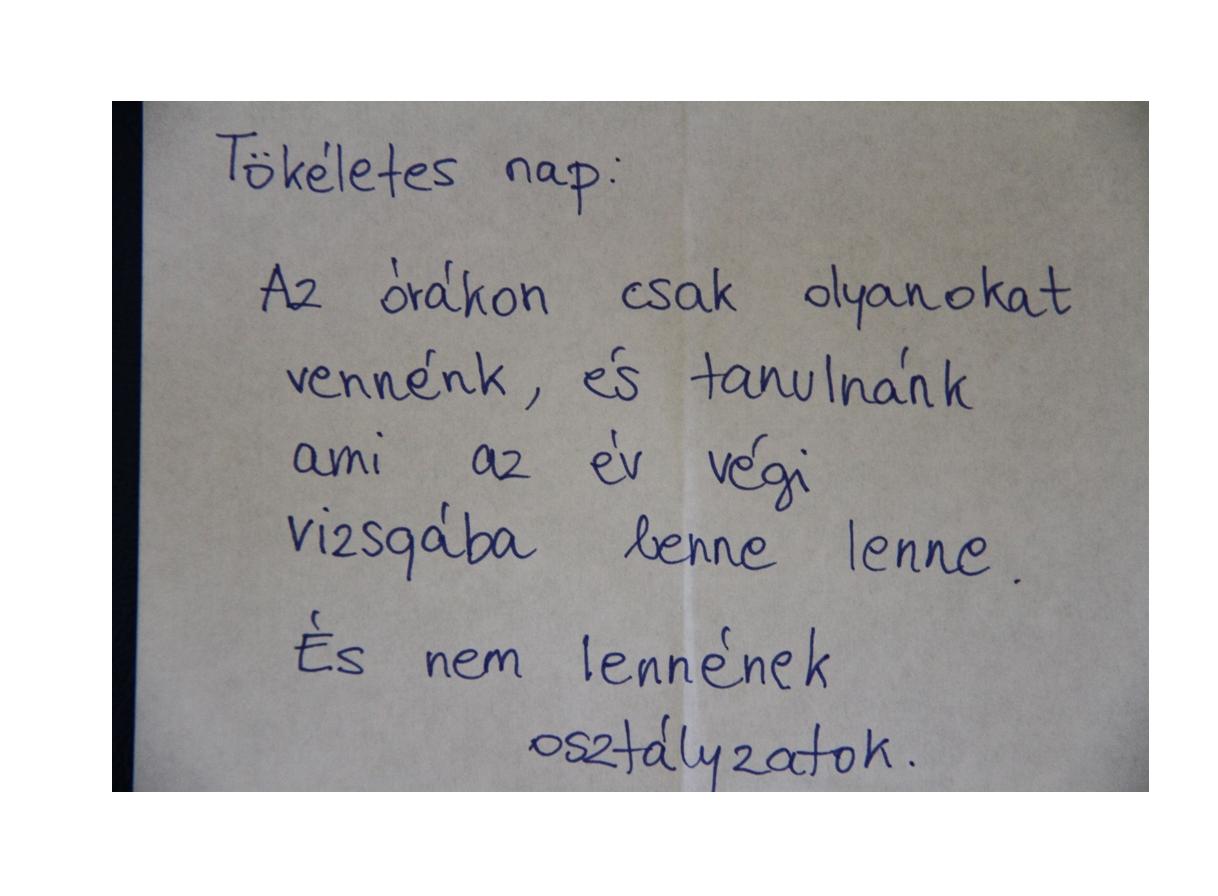 Tökéletes nap:
Az órákon csak olyanokat
vennénk, és tanulnánk
ami az év végi
vizsgába benne lenne.
És nem lennének
osztályzatok.